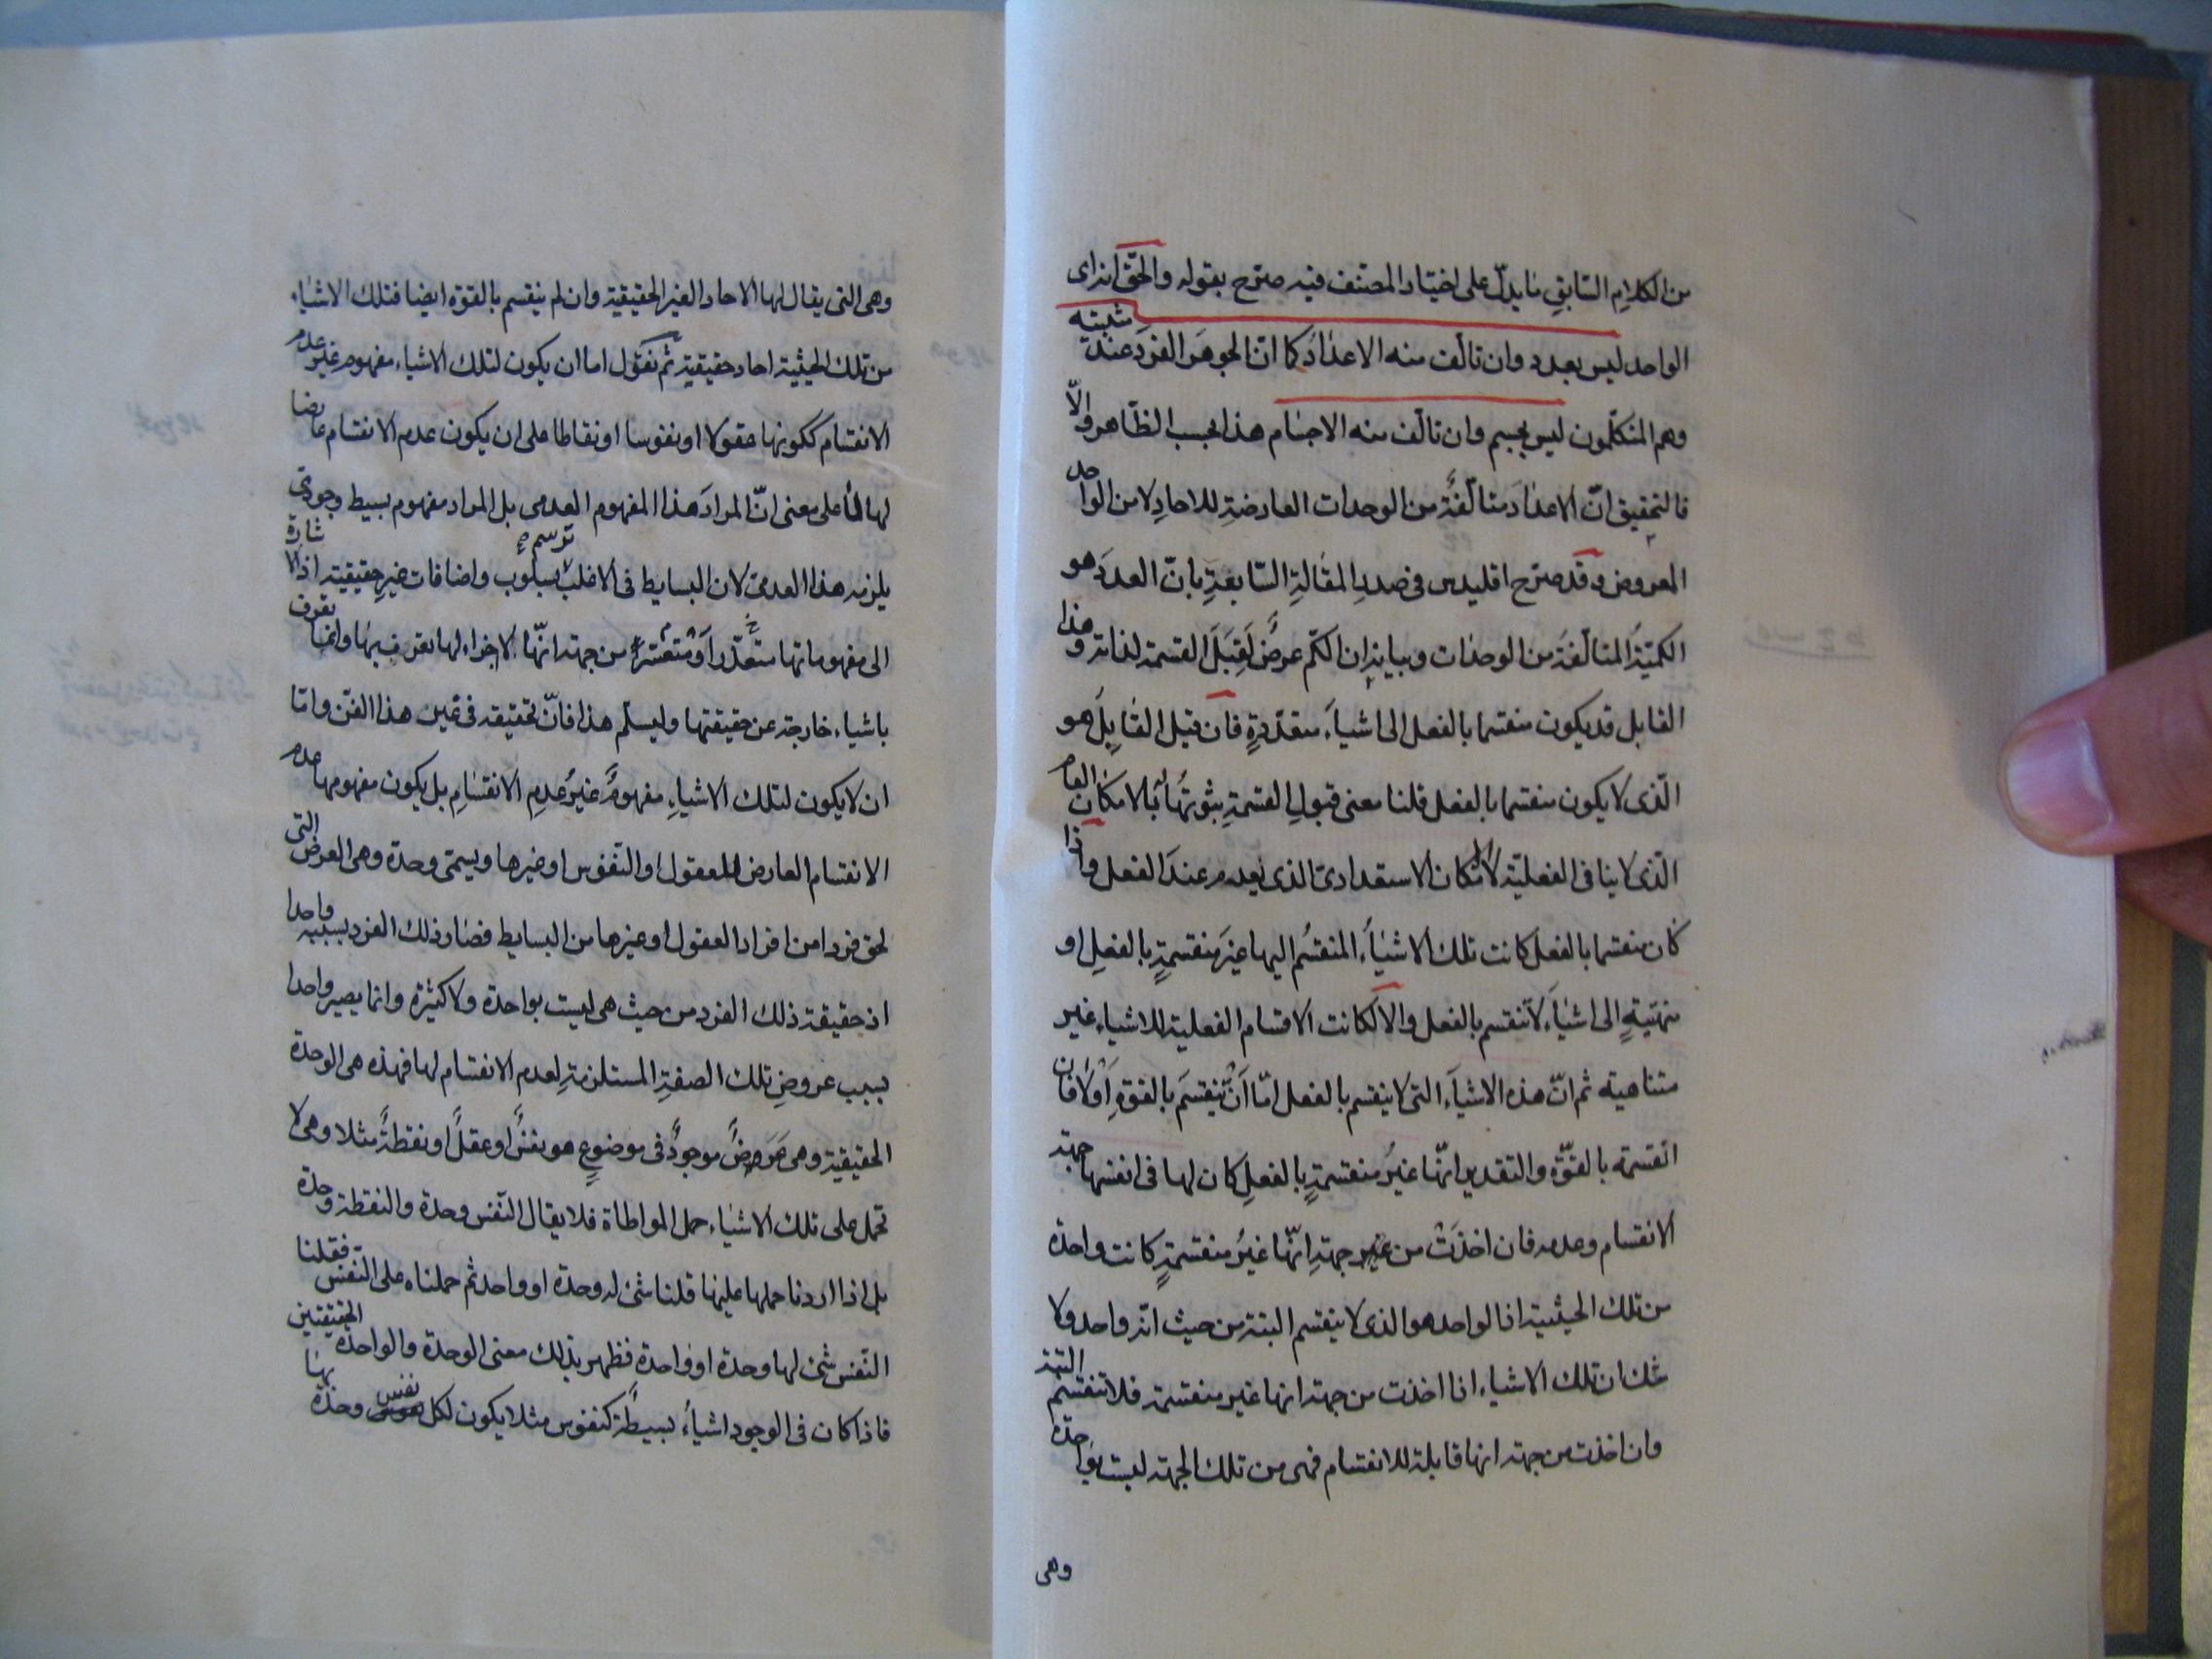 من الكلام السّابق ما يدلّ على اختيار المصنف فيه صرّح بقوله والحقّ انه اى
الواحد ليس بعدد وان تالّف منه الاعداد كما انّ الجوهر الفرد عند مثبته
وهم المتكلّمون ليس بجسم وان تالّف منه الاجسام هذا بحسب الظّاهر والّا
فالتحقيق انّ الاعداد متالّفة من الوحدات العارضة للاحاد لا من الواحد
المعروض وقد صرّح اقليدس فى صدر المقالة السّابعة بانّ العدد هو
الكميّة المتالّفة من الوحدات وبيانه ان الكمّ عرض يقبل القسمة لذاته وهذا
القابل قد يكون منقسما بالفعل الى اشياء متعدّدة فان قيل القابل هو
الّذى لا يكون منقسما بالفعل قلنا معنى قبول القسمة ثبوتها له بالامكان العام
الّذى لا ينافى الفعليّة لا الامكان الاستعدادىّ الذى يعدم عند الفعل واذا
كان منقسما بالفعل كانت تلك الاشياء المنقسم اليها غير منقسمة بالفعل او
منتهية الى اشياء لا تنقسم بالفعل والّا لكانت الاقسام الفعلية للاشياء غير
متناهية ثم انّ هذه الاشياء التى لا ينقسم بالفعل امّا ان ينقسم بالقوة او لا فان
انقسمت بالقوّة والتقدير انّها غير منقسمة بالفعل كان لها فى انفسها جهة
الانقسام وعدمه فان اخذت من جهة انّها غير منقسمة كانت واحدة
من تلك الحيثية اذا الواحد هو الذى لا ينقسم البتة من حيث انّه واحد ولا
شك ان تلك الاشياء اذا اخذت من جهة انها غير منقسمة فلا تنقسم البتة
وان اخذت من جهة انها قابلة للانقسام فهى من تلك الجهة ليست بواحدة
وهى
وهى التى يقال لها الاحاد الغير الحقيقية وان لم ينقسم بالقوة ايضا فتلك الاشياء
من تلك الحيثية احاد حقيقية ثم نقول اما ان يكون لتلك الاشياء مفهوم غير عدم
الانقسام ككونها عقولا او نفوسا او نقاطا على ان يكون عدم الانقسام عارضا
لها لا على معنى انّ المراد هذا المفهوم العدمى بل المراد مفهوم بسيط وجودىّ
يلزمه هذا العدمىّ لان البسايط فى الاغلب ترسم بسلوب واضافات غير حقيقية اذ الاشارة
الى مفهوماتها متعذّر او متعسّر من جهة انّها لا اجزاء لها تعرف بها وانما تعرف
باشياء خارجة عن حقيقتها وليسلّم هذا فانّ تحقيقه فى غير هذا الفنّ وامّا
ان لا يكون لتلك الاشياء مفهوم غير عدم الانقسام بل يكون مفهومها عدم
الانقسام العارض للعقول او النّفوس او غيرها ويسمّى وحدة وهى العرض التى
لحق فردا من افراد العقول او غيرها من البسايط فصار ذلك الفرد بسببه واحدا
اذ حقيقة ذلك الفرد من حيث هى ليست بواحدة ولا كثيرة وانما يصير واحدا
بسبب عروض تلك الصفة المستلزمة لعدم الانقسام لها فهذه هى الوحدة
الحقيقية وهى عرض موجود فى موضوع هو نفس او عقل او نقطة مثلا وهى لا
تحمل على تلك الاشياء حمل المواطاة فلا يقال النّفس وحدة والنقطة وحدة
بل اذا اردنا حملها عليها قلنا شئ له وحدة او واحد ثم حملناه على النّفس فقلنا
النّفس شئ لها وحدة او واحدة فظهر بذلك معنى الوحدة والواحدة الحقيقتين
فاذا كان فى الوجود اشياء بسيطة كنفوس مثلا يكون لكل نفس وحدة بها